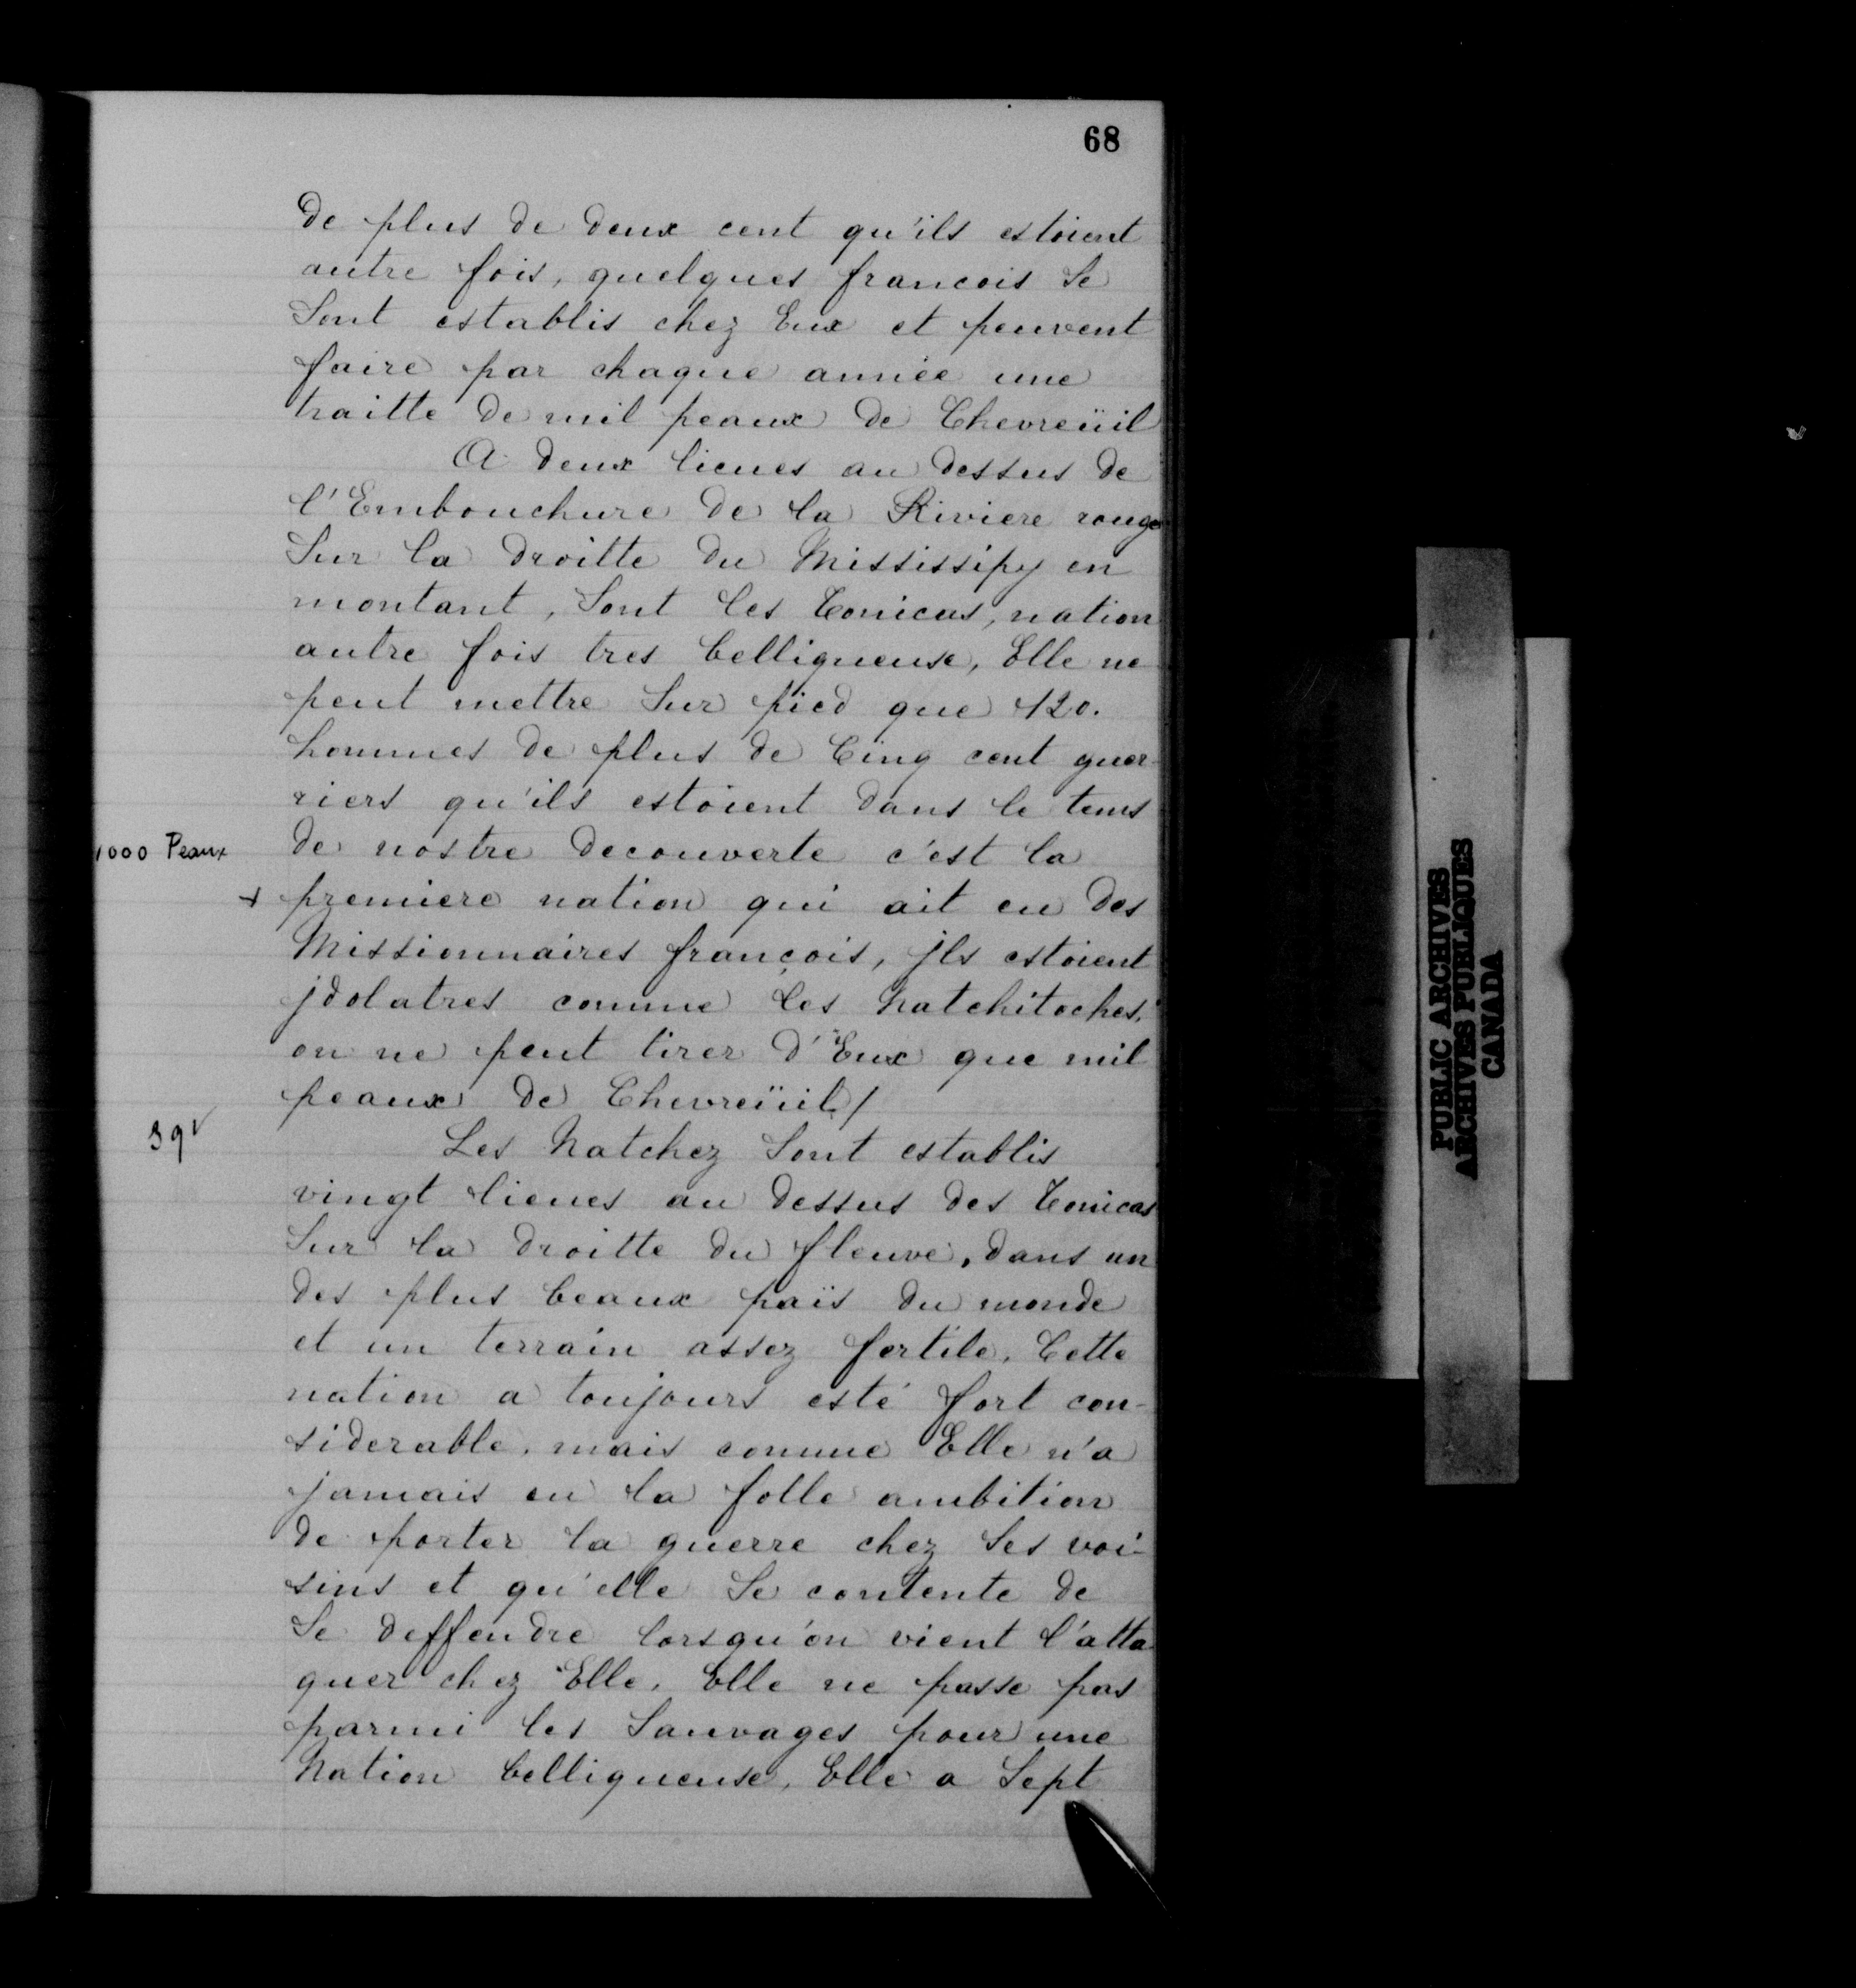 68
de plus de deux cent qu'ils estoient
autre fois, quelques francois Se
Sont establis chez Eux et peuvent
faire par chaque année une
traitte de mil peaux de Chevreüil
A deux lieues au dessus de
l'Embouchure de la Riviere rouge
Sur la droitte du Mississipy en
montant, Sont les Tonicas, nation
autre fois tres belliqueuse, Elle ne
peut mettre Sur pied que 120.
hommes de plus de Cinq cent guer-
riers qu'ils estoient dans le tems
1000 Peaux
de nostre decouverte c'est la
+ premiere nation qui ait eu des
Missionnaires françois, jls estoient
jdolatres comme les Natchitoches.
on ne peut tirer d'Eux que mil
peaux de Chevreüil /
39v
Les Natchez Sont establis
vingt lieues au dessus des Tonicas
Sur la droitte du fleuve, dans un
des plus beaux païs du monde
et un terrain assez fertile. Cette
nation a toujours esté fort con-
siderable, mais comme Elle n'a
jamais eu la folle ambition
de porter la guerre chez Ses voi-
sins et qu'elle Se contente de
Se deffendre lorsqu'on vient l'atta
quer chez Elle, Elle ne passe pas
parmi les Sauvages pour une
Nation belliqueuse, Elle a Sept
PUBLIC ARCHIVES
ARCHIVES PUBLIQUES
CANADA